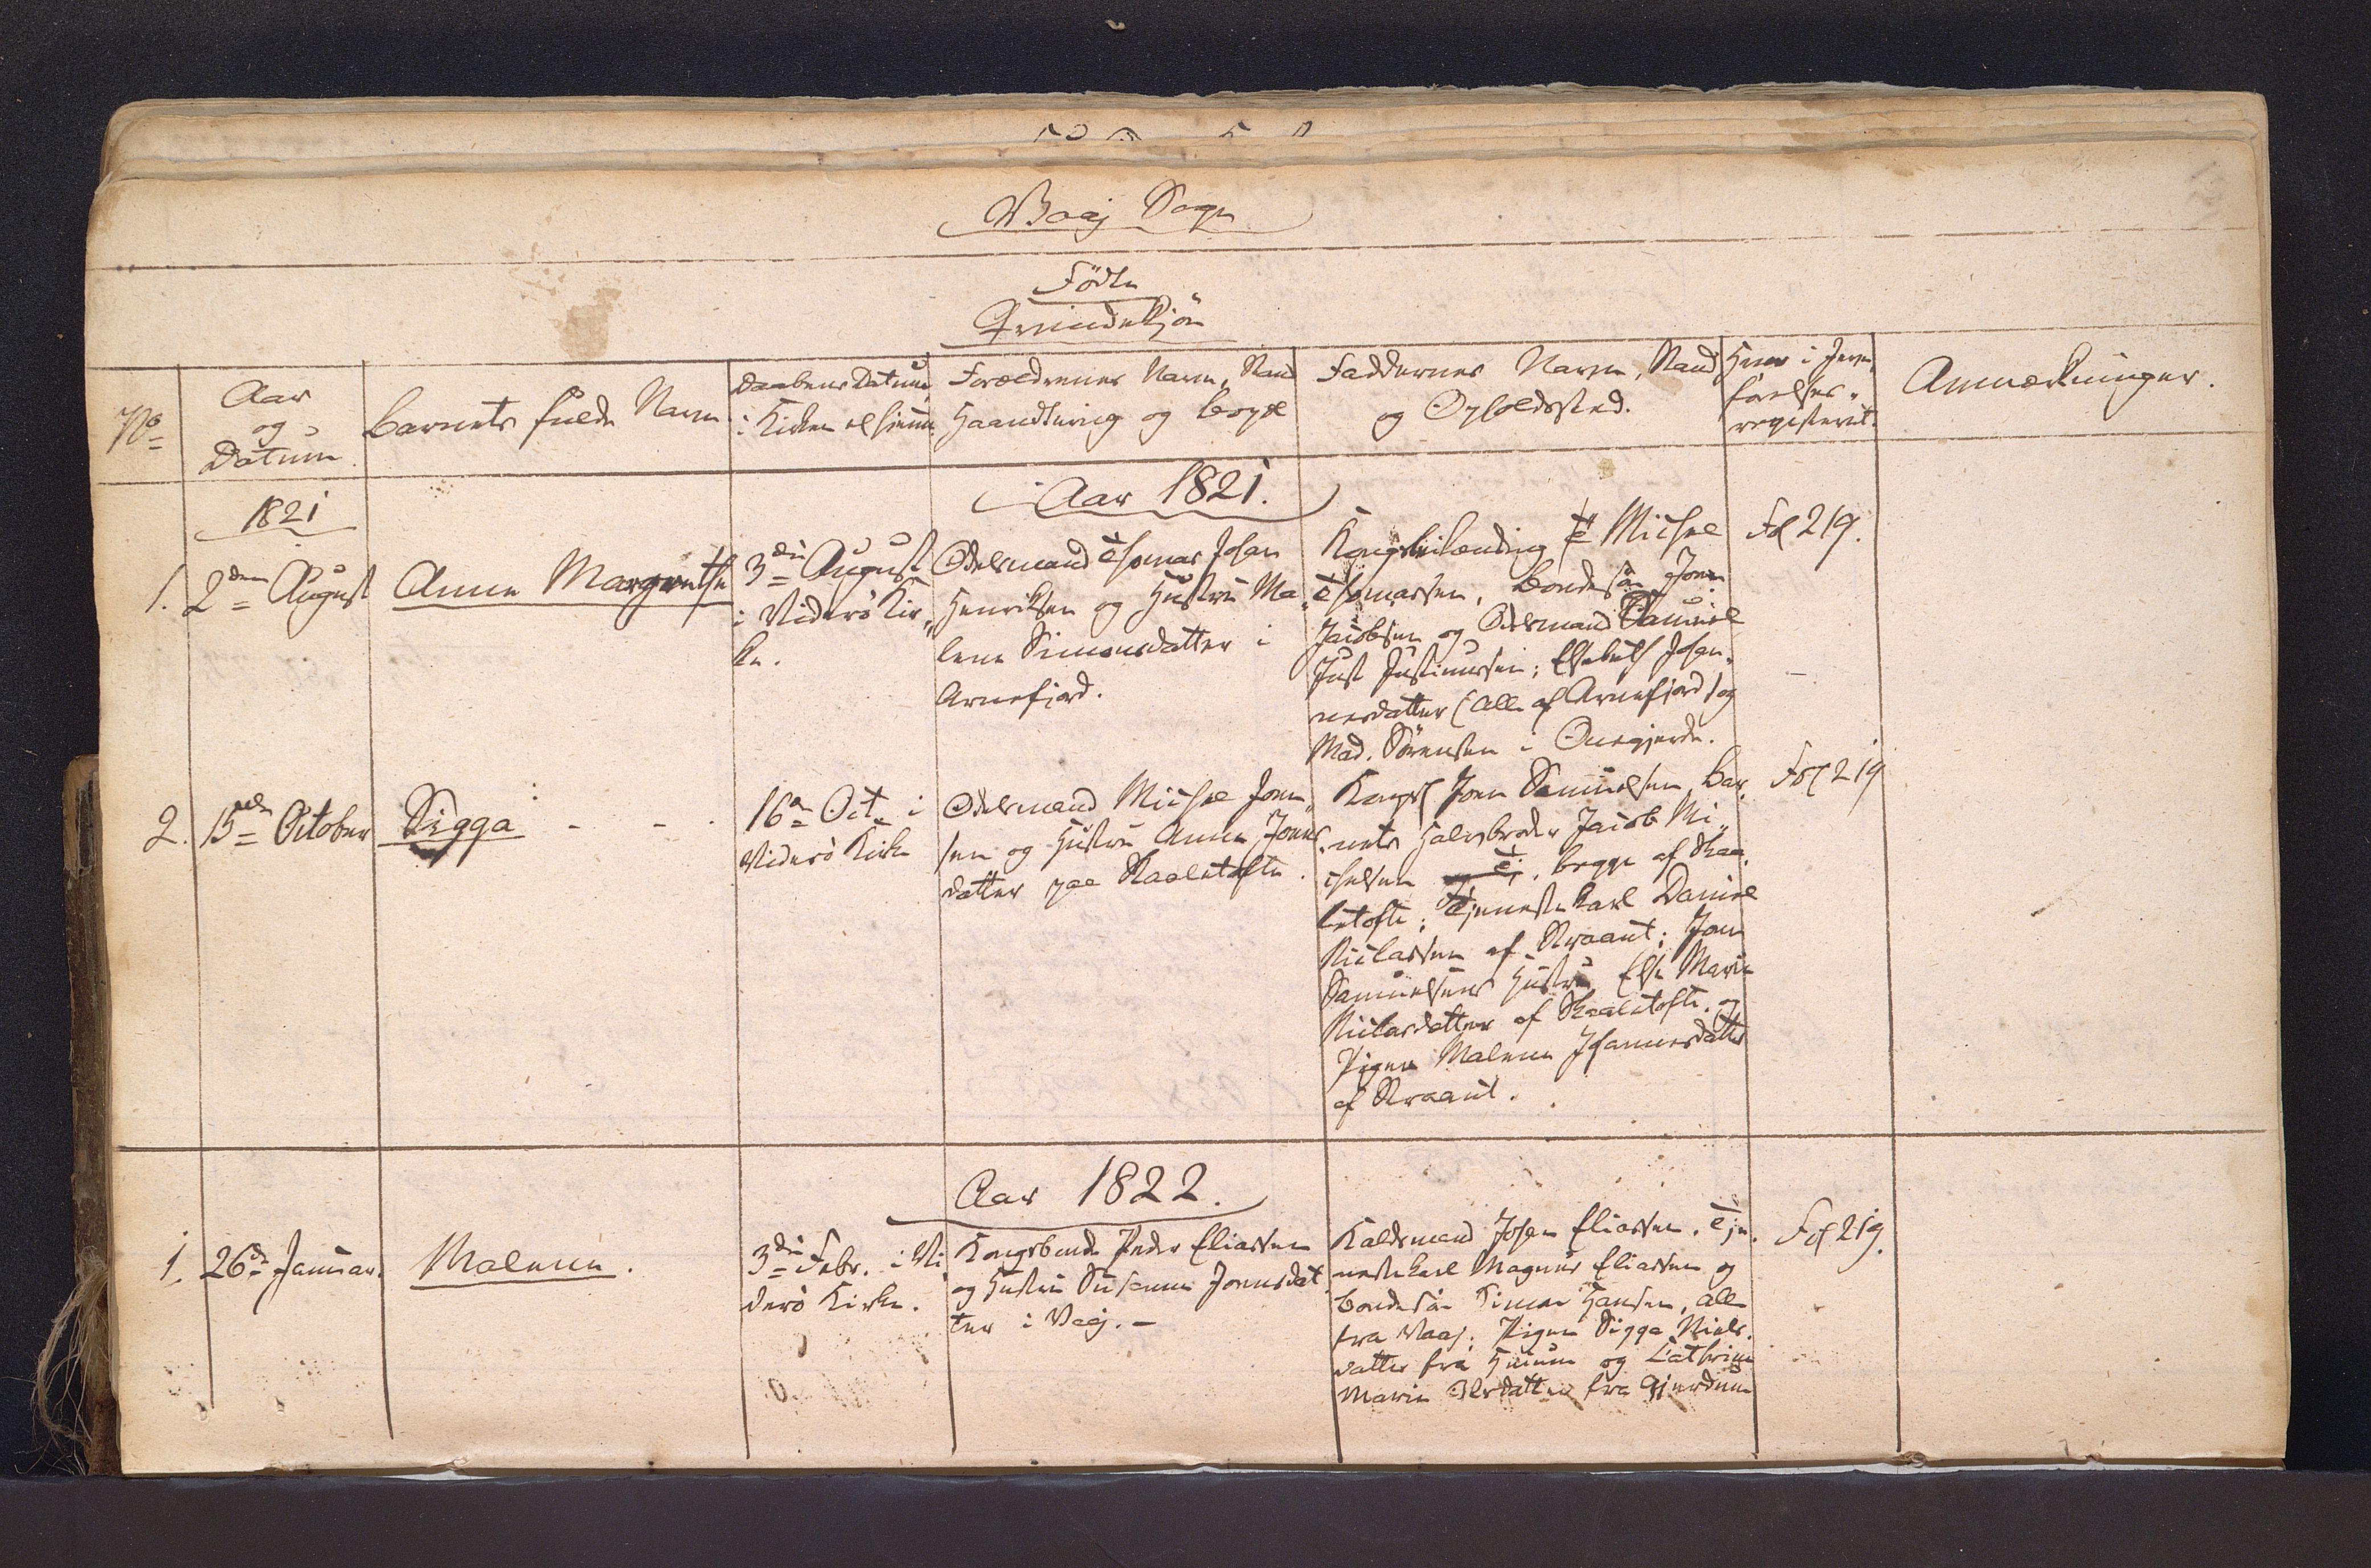 Waaj Sogn
Födte
Qvindekjön
No
Aar
og
Datum
Barnets fulde Navn
Daabens Datum,
i Kirken el hiemme
Forældrenes Navn, Stand
Haandtering og Bopæl
Faddernes Navn, Stand
og Opholdssted.
Hvor i Jevn-
förelses-
registeret.
Anmærkninger.
Aar 1821.
1821
1. 2den August
Anne Margrethe
3die August
i Viderö Kir-
ke.
Odelsmand Thomas Johan
Henriksen og Hustru Ma-
lene Simonsdatter i
Arnefjord.
Michel
Thomassen, Bondesön Joen
Jacobsen og Odelsmand Samuel
Just Justinussen; Elsebeth Johan-
nesdatter (alle af Arnefjord) og
Mad. Sörensen i Onegjerde.
Fol 219.
2. 15de October
Sigga
16de Oct. i
Viderö Kirke
Odelsmand Michel Joen-
sen og Hustru Anne Joens-
datter paa Skaaletofte.
Joen Samuelsen, Bar-
nets Halvbroder Jacob Mi-
chelsen, begge af Skaa-
letofte; Tjenestekarl Daniel
Niclassen af Straant; Joen
Samuelsens Hustru Else Marie
Niclasdatter af Skaaletofte og
Pigen Malene Johannesdatter
af Straant.
Fol 219
Aar 1822.
1. 26de Januar.
Malene.
3die Febr. i Vi-
derö Kirke.
Kongsbonde Peder Eliassen
og Hustru Susanne Joensdat-
ter i Vaaj.
Kaldsmand Johan Eliassen, Tje-
nestekarl Magnus Eliassen og
Bondesön Simon Hansen, alle
fra Vaaj; Pigen Sigga Niels-
datter fra Hunum og Cathrine
Marie Olsdatter fra Gjerdum
Fol 219.